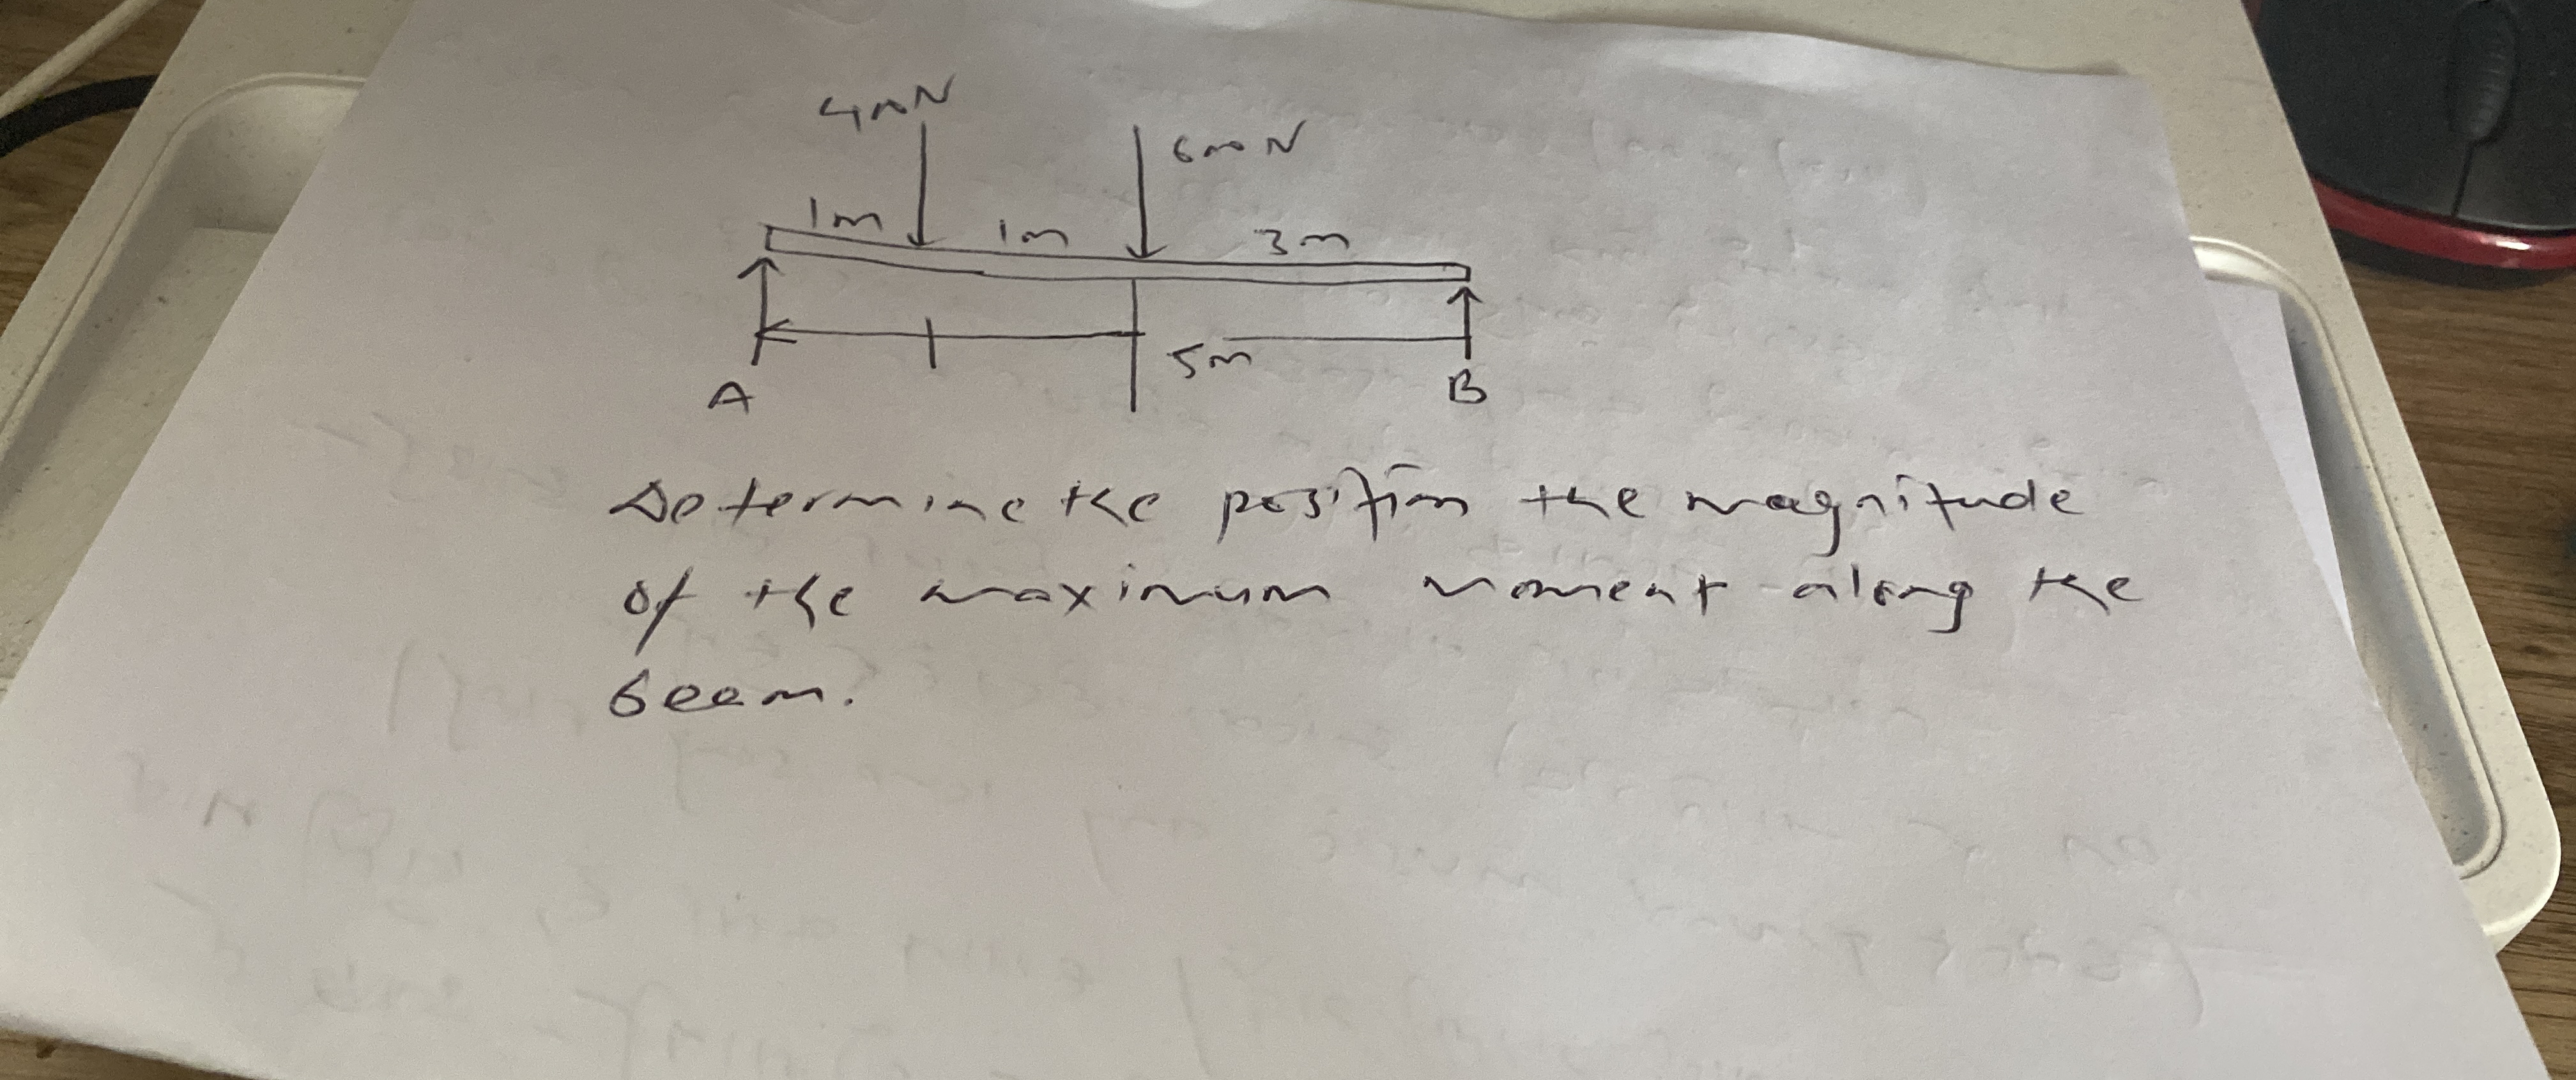 400N
600N
1m 1m 3m
5m
A B
Determine the position the magnitude
of the maximum moment along the
beam.